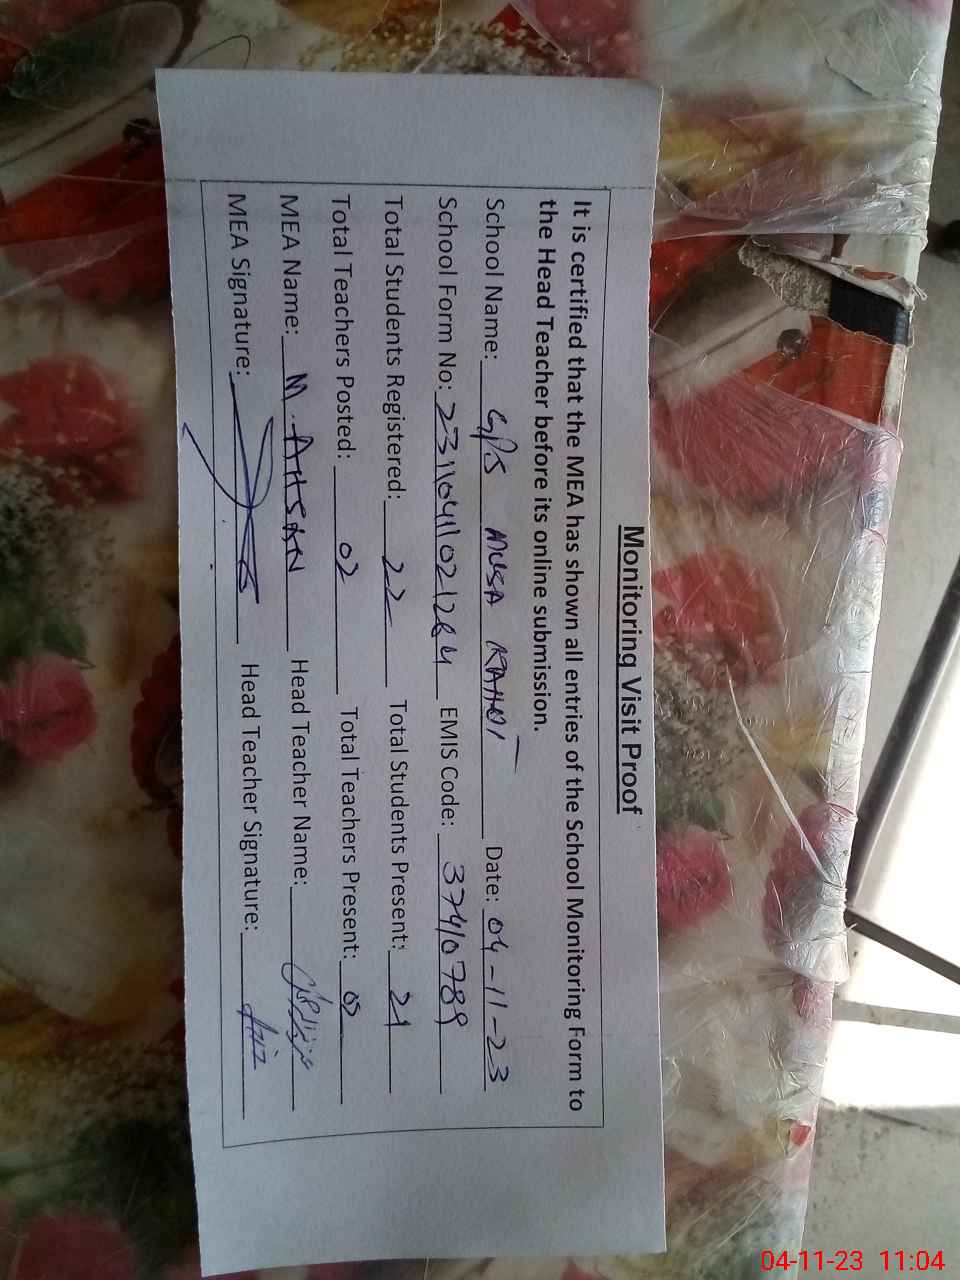 Monitoring Visit Proof
It is certified that the MEA has shown all entries of the School Monitoring Form to
the Head Teacher before its online submission.
School Name: GPS MUSA KAHOT Date: 04-11-23
School Form No: EMIS Code: 37410789
Total Students Registered: 22 Total Students Present: 21
Total Teachers Posted: 02 Total Teachers Present: 02
MEA Name: M. AHSAN Head Teacher Name:
MEA Signature: Head Teacher Signature:
04-11-23 11:04